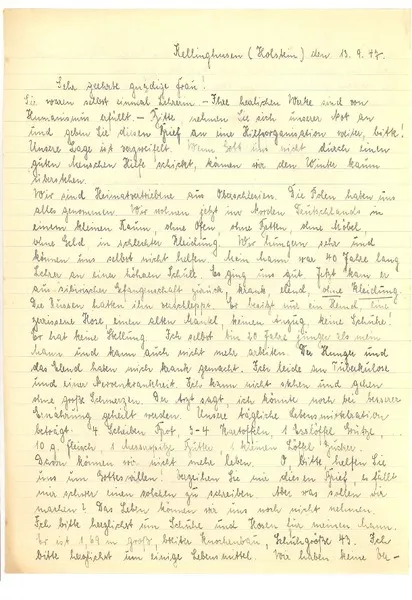 Kellinghusen (Holstein) den 13.9.47.
Sehr geehrte gnädige Frau!
Sie waren selbst einmal Lehrerin. – Ihre herrlichen Werke sind von
Humanismus erfüllt. – Bitte nehmen Sie sich unserer Not an
und geben Sie diesen Brief an eine Hilfsorganisation weiter, bitte!
Unsere Lage ist verzweifelt. Wenn Gott uns nicht durch einen
guten Menschen Hilfe schickt, können wir den Winter kaum
überstehen.
Wir sind Heimatvertriebene aus Oberschlesien. Die Polen haben uns
alles genommen. Wir wohnen jetzt im Norden Deutschlands in
einem kleinen Raum, ohne Ofen, ohne Betten, ohne Möbel,
ohne Geld, in schlechter Kleidung. Wir hungern sehr und
können uns selbst nicht helfen. Mein Mann war 40 Jahre lang
Lehrer an einer höheren Schule. Es ging uns gut. Jetzt kam er
aus sibirischer Gefangenschaft zurück, krank, elend, ohne Kleidung.
Die Russen hatten ihn verschleppt. Er besitzt nur ein Hemd, eine
zerrissene Hose, einen alten Mantel, keinen Anzug, keine Schuhe!
Er hat keine Stellung. Ich selbst bin 20 Jahre jünger als mein
Mann und kann auch nicht mehr arbeiten. Der Hunger und
das Elend haben mich krank gemacht. Ich leide an Tuberkulose
und einer Nervenkrankheit. Ich kann nicht stehen und gehen
ohne große Schmerzen. Der Arzt sagt, ich könnte noch bei besserer
Ernährung geheilt werden. Unsere tägliche Lebensmittelration
beträgt: 4 Scheiben Brot, 3-4 Kartoffeln, 1 Esslöffel Grütze,
10 g. Fleisch, 1 Butter, 1 kleinen Löffel Zucker.
Davon können wir nicht mehr leben. O, bitte helfen Sie
uns um Gotteswillen! Verzeihen Sie mir diesen Brief, es fällt
mir schwer einen solchen zu schreiben. Aber was sollen wir
machen? Das Leben können wir uns noch nicht nehmen.
Ich bitte herzlichst um Schuhe und Hosen für meinen Mann.
Er ist 1,69 m groß, breiter Knochenbau, Schuhgröße 43. Ich
bitte herzlichst um einige Lebensmittel. Wir haben keine Ver-